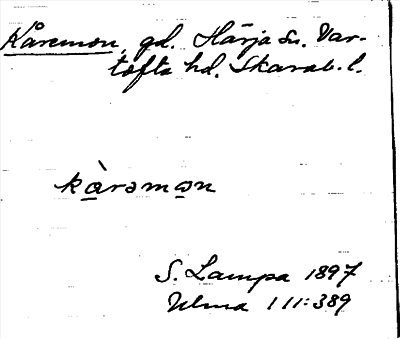 Kåremon, gd. Härja sn. Var-
tofta hd. Skarab. l.
kàrəmən
S. Lampa 1897
Ulma 111:389